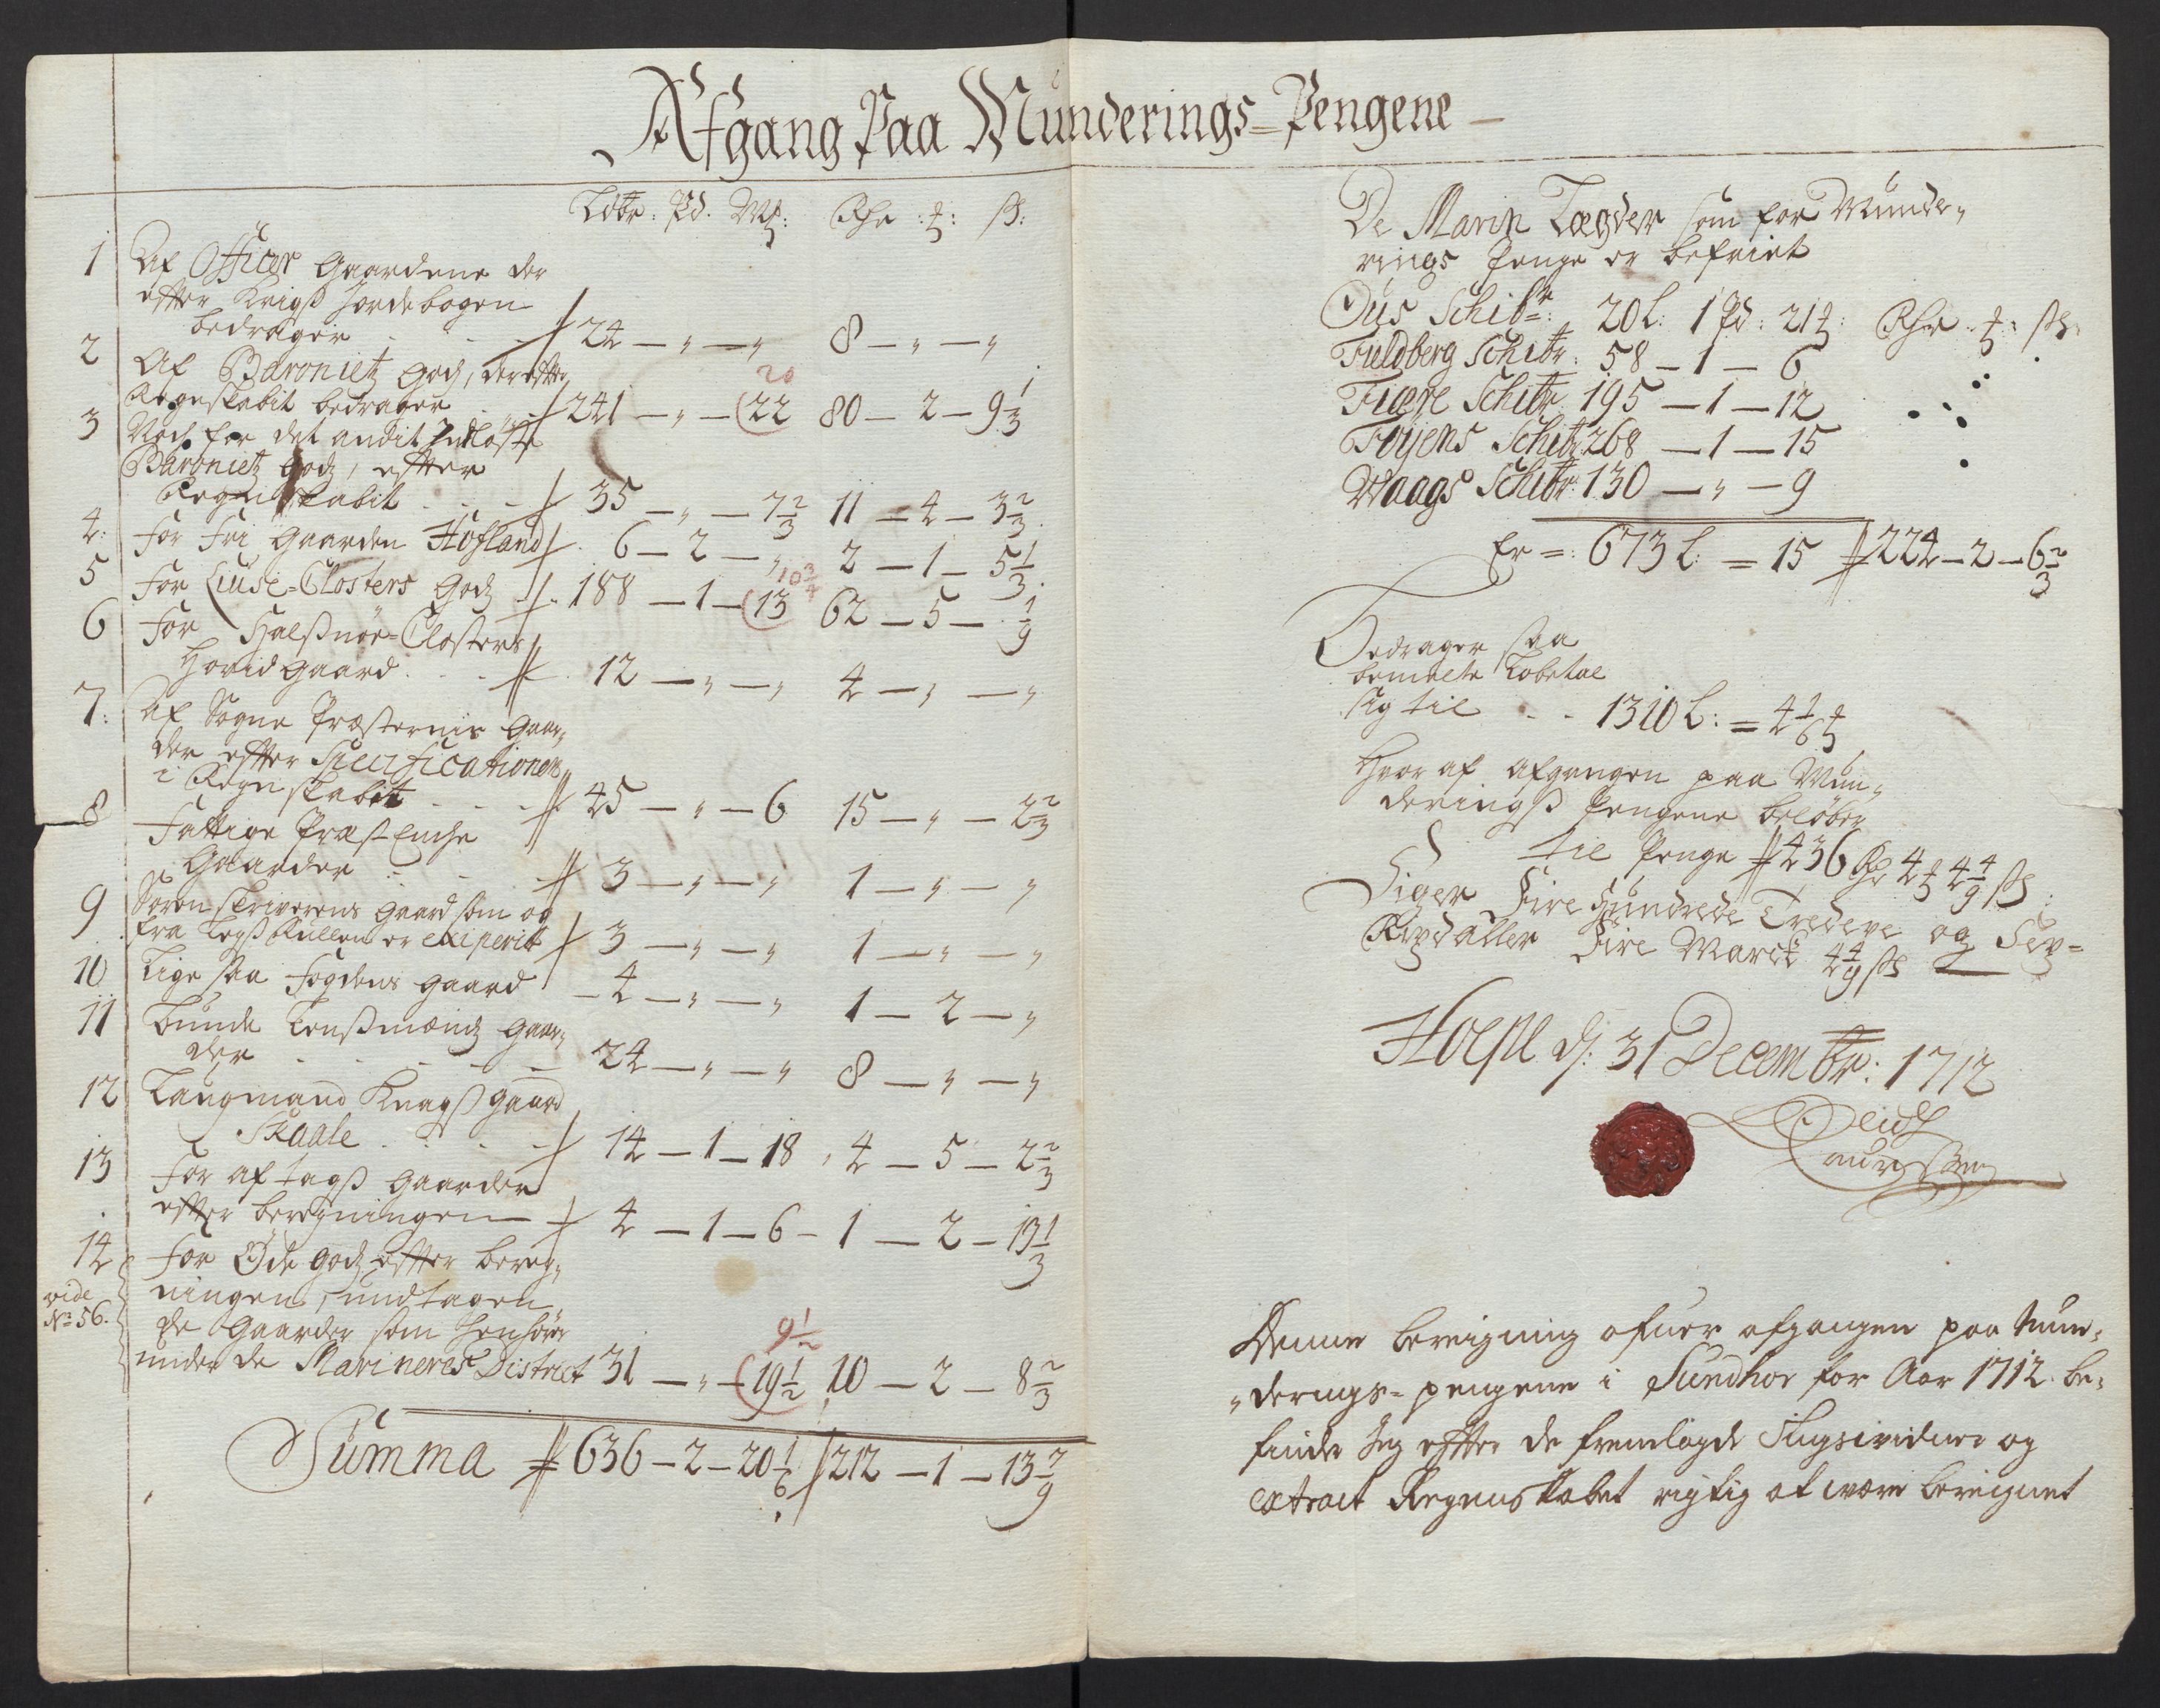 Afgang Paa Munderings-Pengene
Løbe: Pd. Mk: Rhr: mk: ß:
1 Af Officer Gaardene der
efter Krigs Jordebogen
bedrager 24 — „ — „ 8 — „ — „
2 Af Baronietz Godz, der efter 20
Regnskabit bedrager 241 — „ — 22 80 — 2 — 9 1/3
3 Noch for det andit Indløste
Baronietz Godz, efter
Regnskabit 35 — „ — 7 2/3 11 — 4 — 3 2/3
4: For Fri Gaarden Hofland 6 — 2 — „ 2 — 1 — 5 1/3
10 3/4
5 For Liuse-Closters Godz 188 — 1 — 13 62 — 5 — 1/9
6 For Halßnöe-Closters
Hovid gaard 12 — „ — „ 4 — „ — „
7: Af Sogne Præsternis Gaar„
der efter Specificationen
i Regnskabet 45 — „ — 6 15 — „ — 2 2/3
8 Fattige Præst Enche
Gaarder 3 — „ — „ 1 — „ — „
9 Soren skriverens gaard som og
fra Legß Rullen er eximerit 3 — „ — „ 1 — „ — „
10 Lige saa Fogdens gaard — 4 — „ — „ 1 — 2 — „
11 Bunde Lensßmænds gaar„
der 24 — „ — „ 8 — „ — „
12 Laugmand Knags gaard
Skaale 14 — 1 — 18 4 — 5 — 2 2/3
13 For aftags gaarder
efter beregningen 4 — 1 — 6 — 1 — 2 — 13 1/3
14 For Øde godz efter bereg„
vide ningen, undtagen
No 56. de Gaarder som henhører 9 1/2
under de Marineres District 31 — „ — 19 1/2 10 — 2 — 8 2/3
Summa 636 — 2 — 20 1/6 212 — 1 — 13 7/9
De Marin Lægder som for Munde„
rings Penge er befriet
Ous Schibr: 20 L: 1 Pd: 21 mk: Rhr: mk: ß:
Fieldberg Schibr: 58 — 1 — 6
Fiære Schibr: 195 — 1 — 12
Føyens Schibr: 268 — 1 — 15
Waags Schibr: 130 — „ — 9
Er =: 673 L: = 15 224 — 2 — 6 2/3
Bedrager saa
bemelte Løbetal
sig til 1310 L: = 4 1/6 mk
Hvor af afgangen paa Mun„
deringß Pengene beløber
til Penge 436 Rhr 4 mk 4 4/9 ß:
Siger Fire Hundrede Tredeve og Sex=
Rixdaller Fire Marck 4 4/9 ß
d: 31 Decembr: 1712
Laurssen
Denne bereigning ofuer afgangen paa Mun„
„derings-pengene i Sundhor for Aar 1712. be„
finder Jeg efter de fremlagde Tingsvidner og
extract Regenskabet rigtig at være bereignet